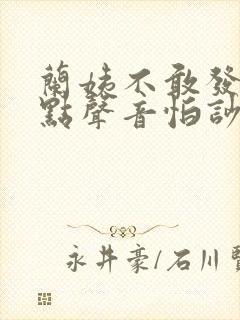 蘭姨不敢發
點聲音怕訪
永井豪/石川賢